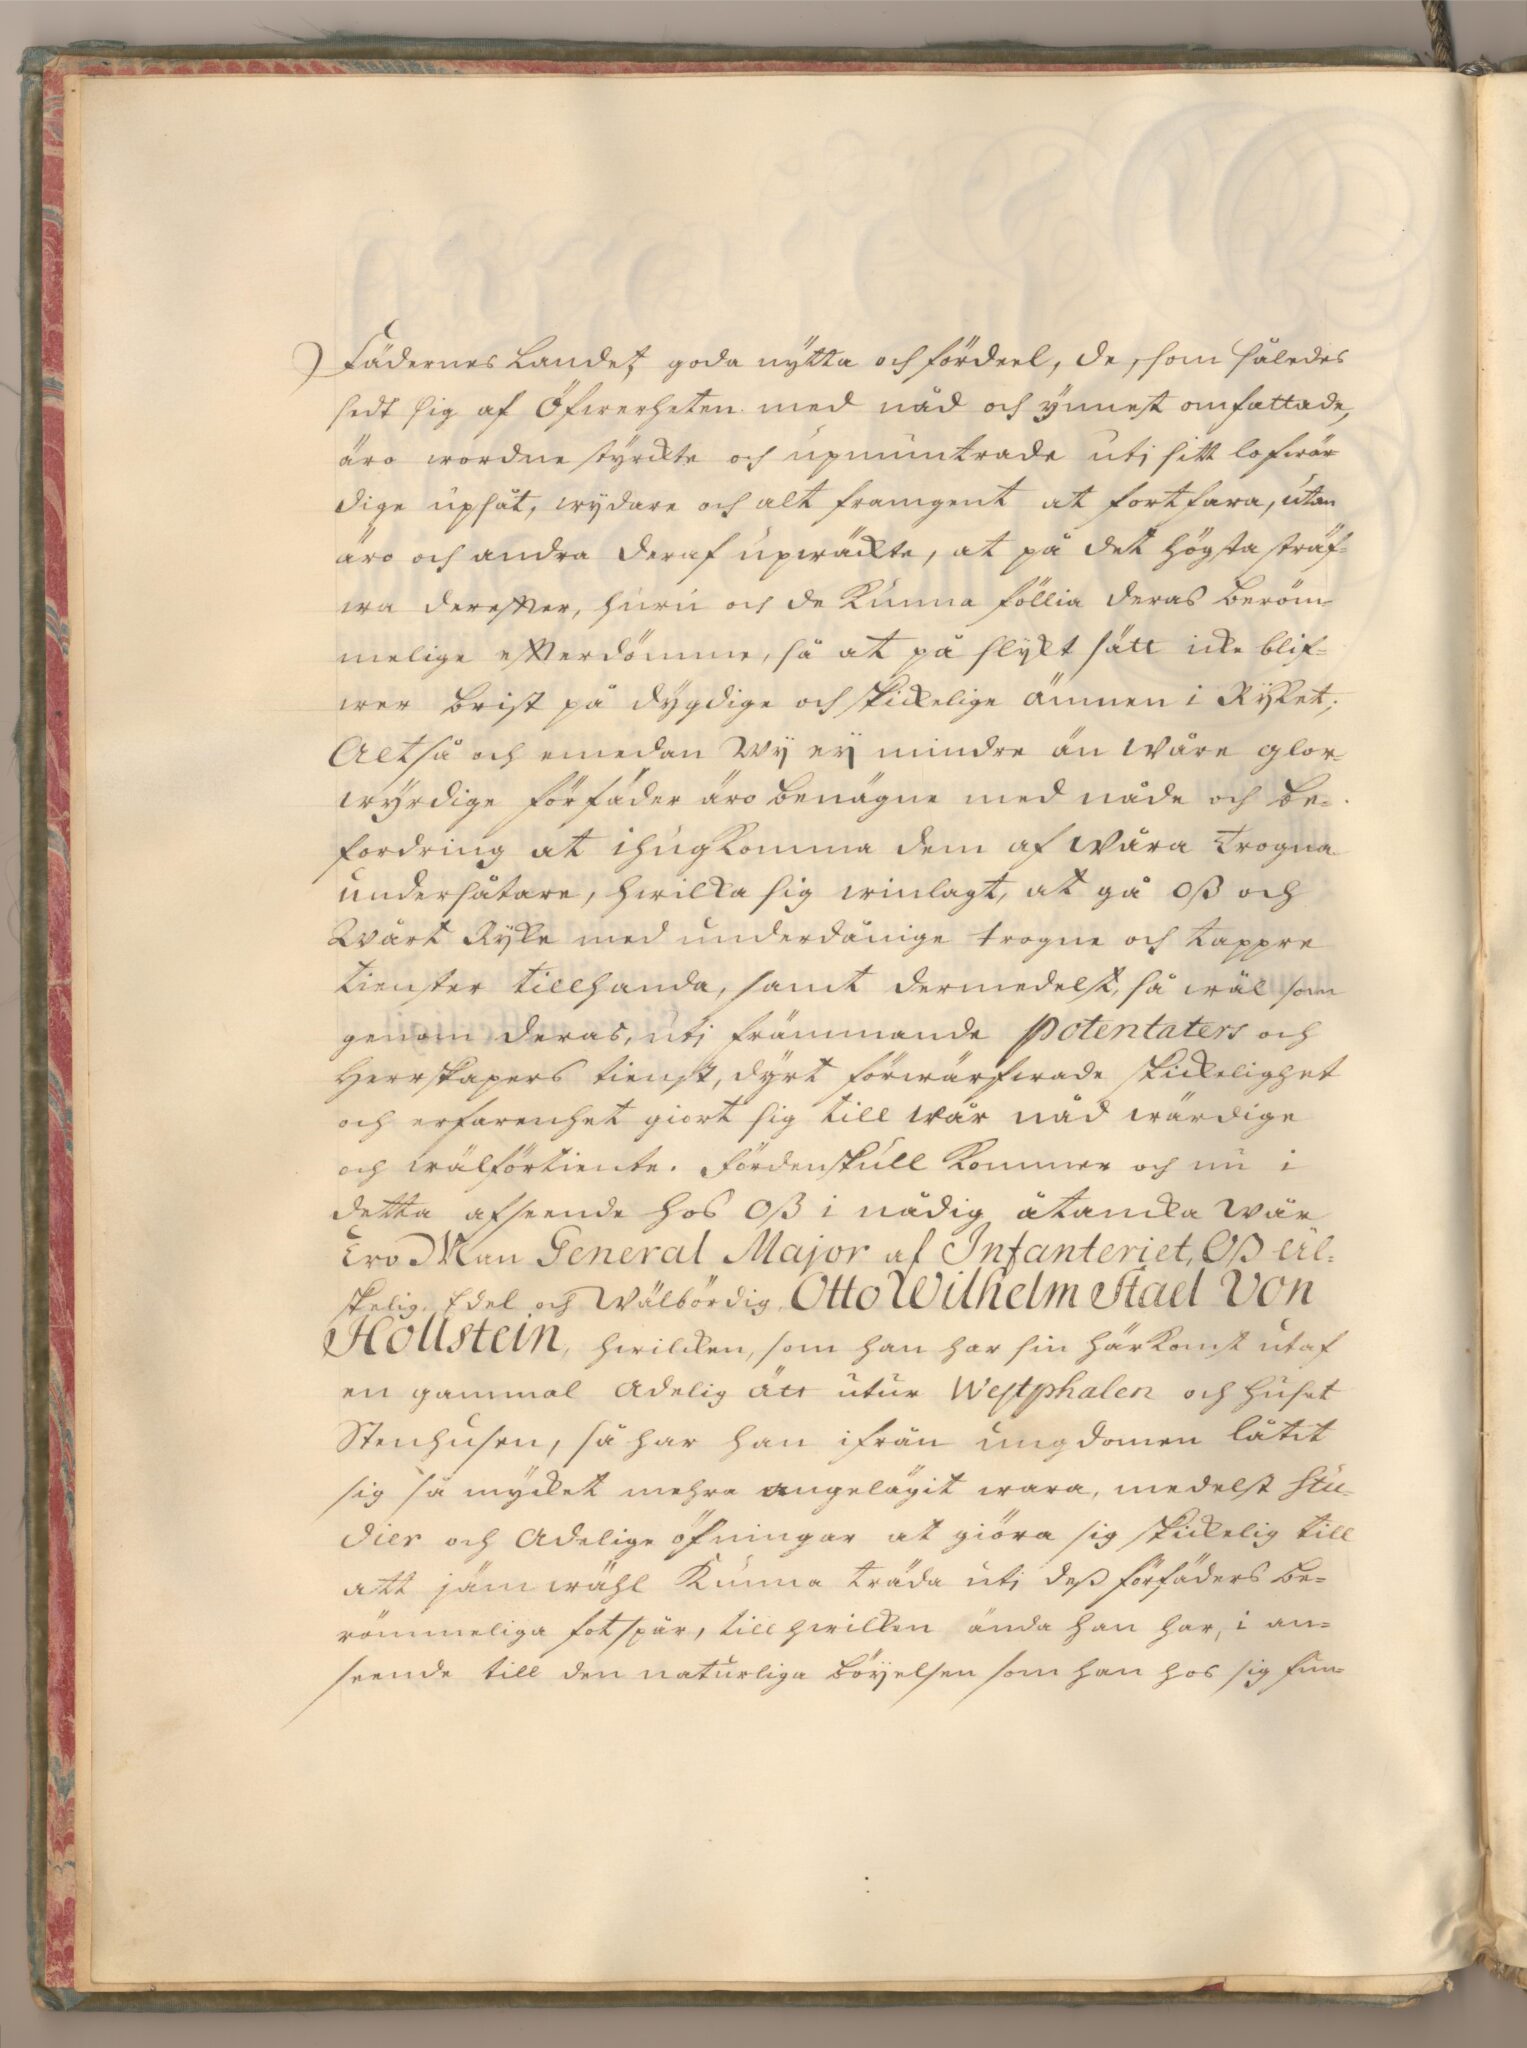 Fädernes Landetz goda nÿtta och fördeel, de, som således
sedt sig af Öfwerheten med nåd och ÿnnest omfattade,
äro wordne stÿrckte och upmuntrade utj sitt lofwär
dige upsåt, wydare och alt framgent at fortfara, utan
äro och andra deraf upwäckte, at på det högsta sträf-
wa derefter, huru och de kunna föllia deras beröm
melige efterdömme, så at på slykt sätt icke blif-
wer brist på dÿgdige och skickelige ämnen i Rÿket;
Altså och emedan Wÿ eÿ mindre än Wåre glor-
wÿrdige förfäder äro benägne med nåde och be-
fordring at ihugkomma dem af Wåra trogna
undersåtare, hwilka sig winlagt, at gå Oß och
Wårt Ryke med underdånige trogne och tappre
tienster tillhanda, samt dermedelst, så wäl som
genom deras, utj främmande Potentaters och
Herrskapers tienst, dÿrt förwärfwade skickelighet
och erfarenhet giort sig till wår nåd wärdige
och wälförtiente. Fördenskull kommer och nu i
detta afseende hos Oß i nådig åtancka Wår
Tro Man General Major af Infanteriet, Oß äl-
skelig, Edel och Wälbördig, Otto Wilhelm Stael Von
Hollstein, hwilcken, som han har sin härkomst utaf
en gammal Adelig ätt utur Westphalen och huset
Stenhusen, så har han ifrån ungdomen låtit
sig så mÿcket mehra angelägit wara, medelst Stu-
dier och Adelige öfningar at giöra sig skickelig till
att jämwähl kunna träda utj deß förfäders be-
römmeliga fotspår, till hwilken ända han har, i an-
seende till den naturliga böÿelsen som han hos sig fun-